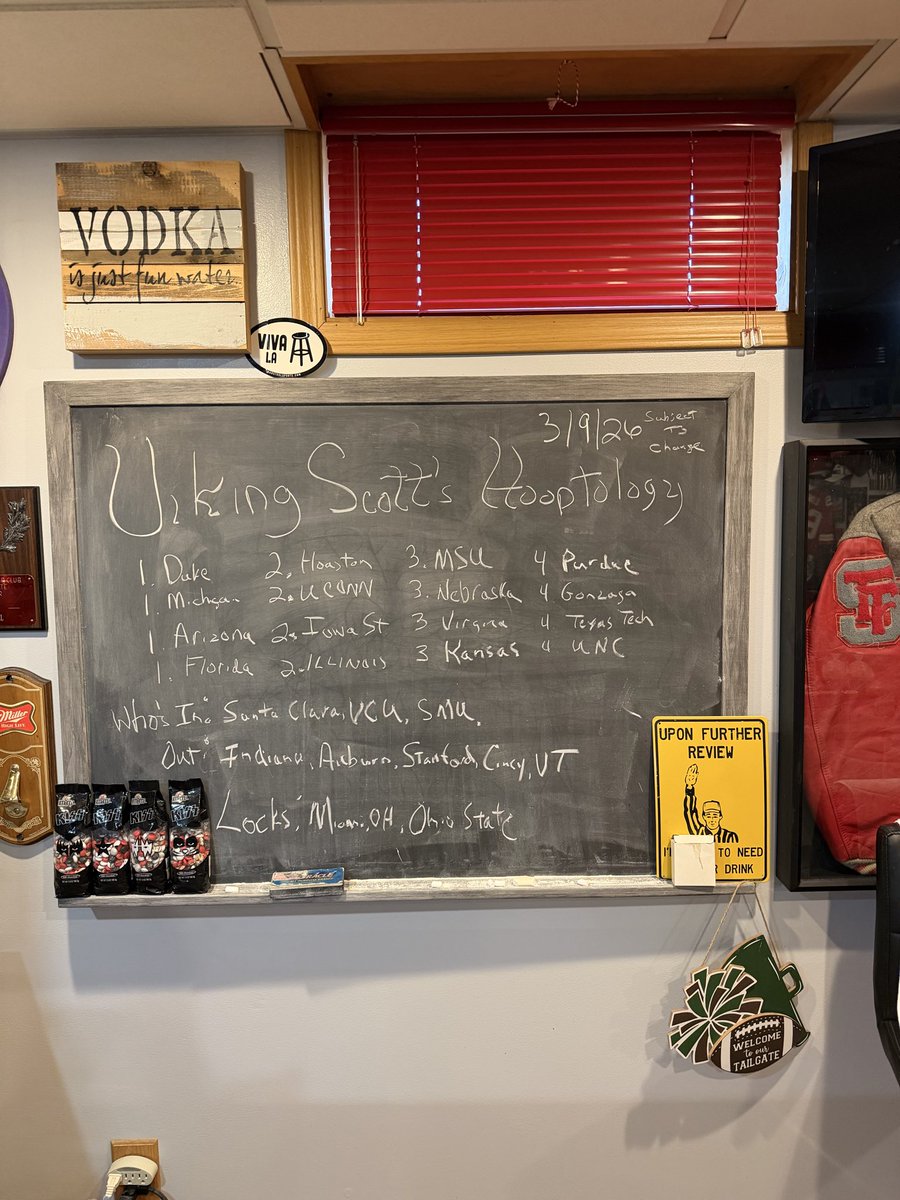 VODKA
is just fun water.
VIVA
LA
3/9/26 Subject
To
Change
Viking Scott's Hooptology
1. Duke 2. Hoaston 3. MSU 4 Purdue
1. Michgan 2. UCONN 3. Nebraska 4 Gonzaga
1. Arizona 2. Iowa St 3 Virgina 4 Texas Tech
1. Florida 2. ILLINOIS 3 Kansas 4 UNC
Who's In: Santa Clara, VCU, SMU.
Out: Indiana, Auburn, Stanford, Cincy, VT
Locks: Miami, OH, Ohio State
UPON FURTHER
REVIEW
TO NEED
DRINK
Miller
HIGH LIFE
KISS KISS KISS KISS
WELCOME
to our
TAILGATE